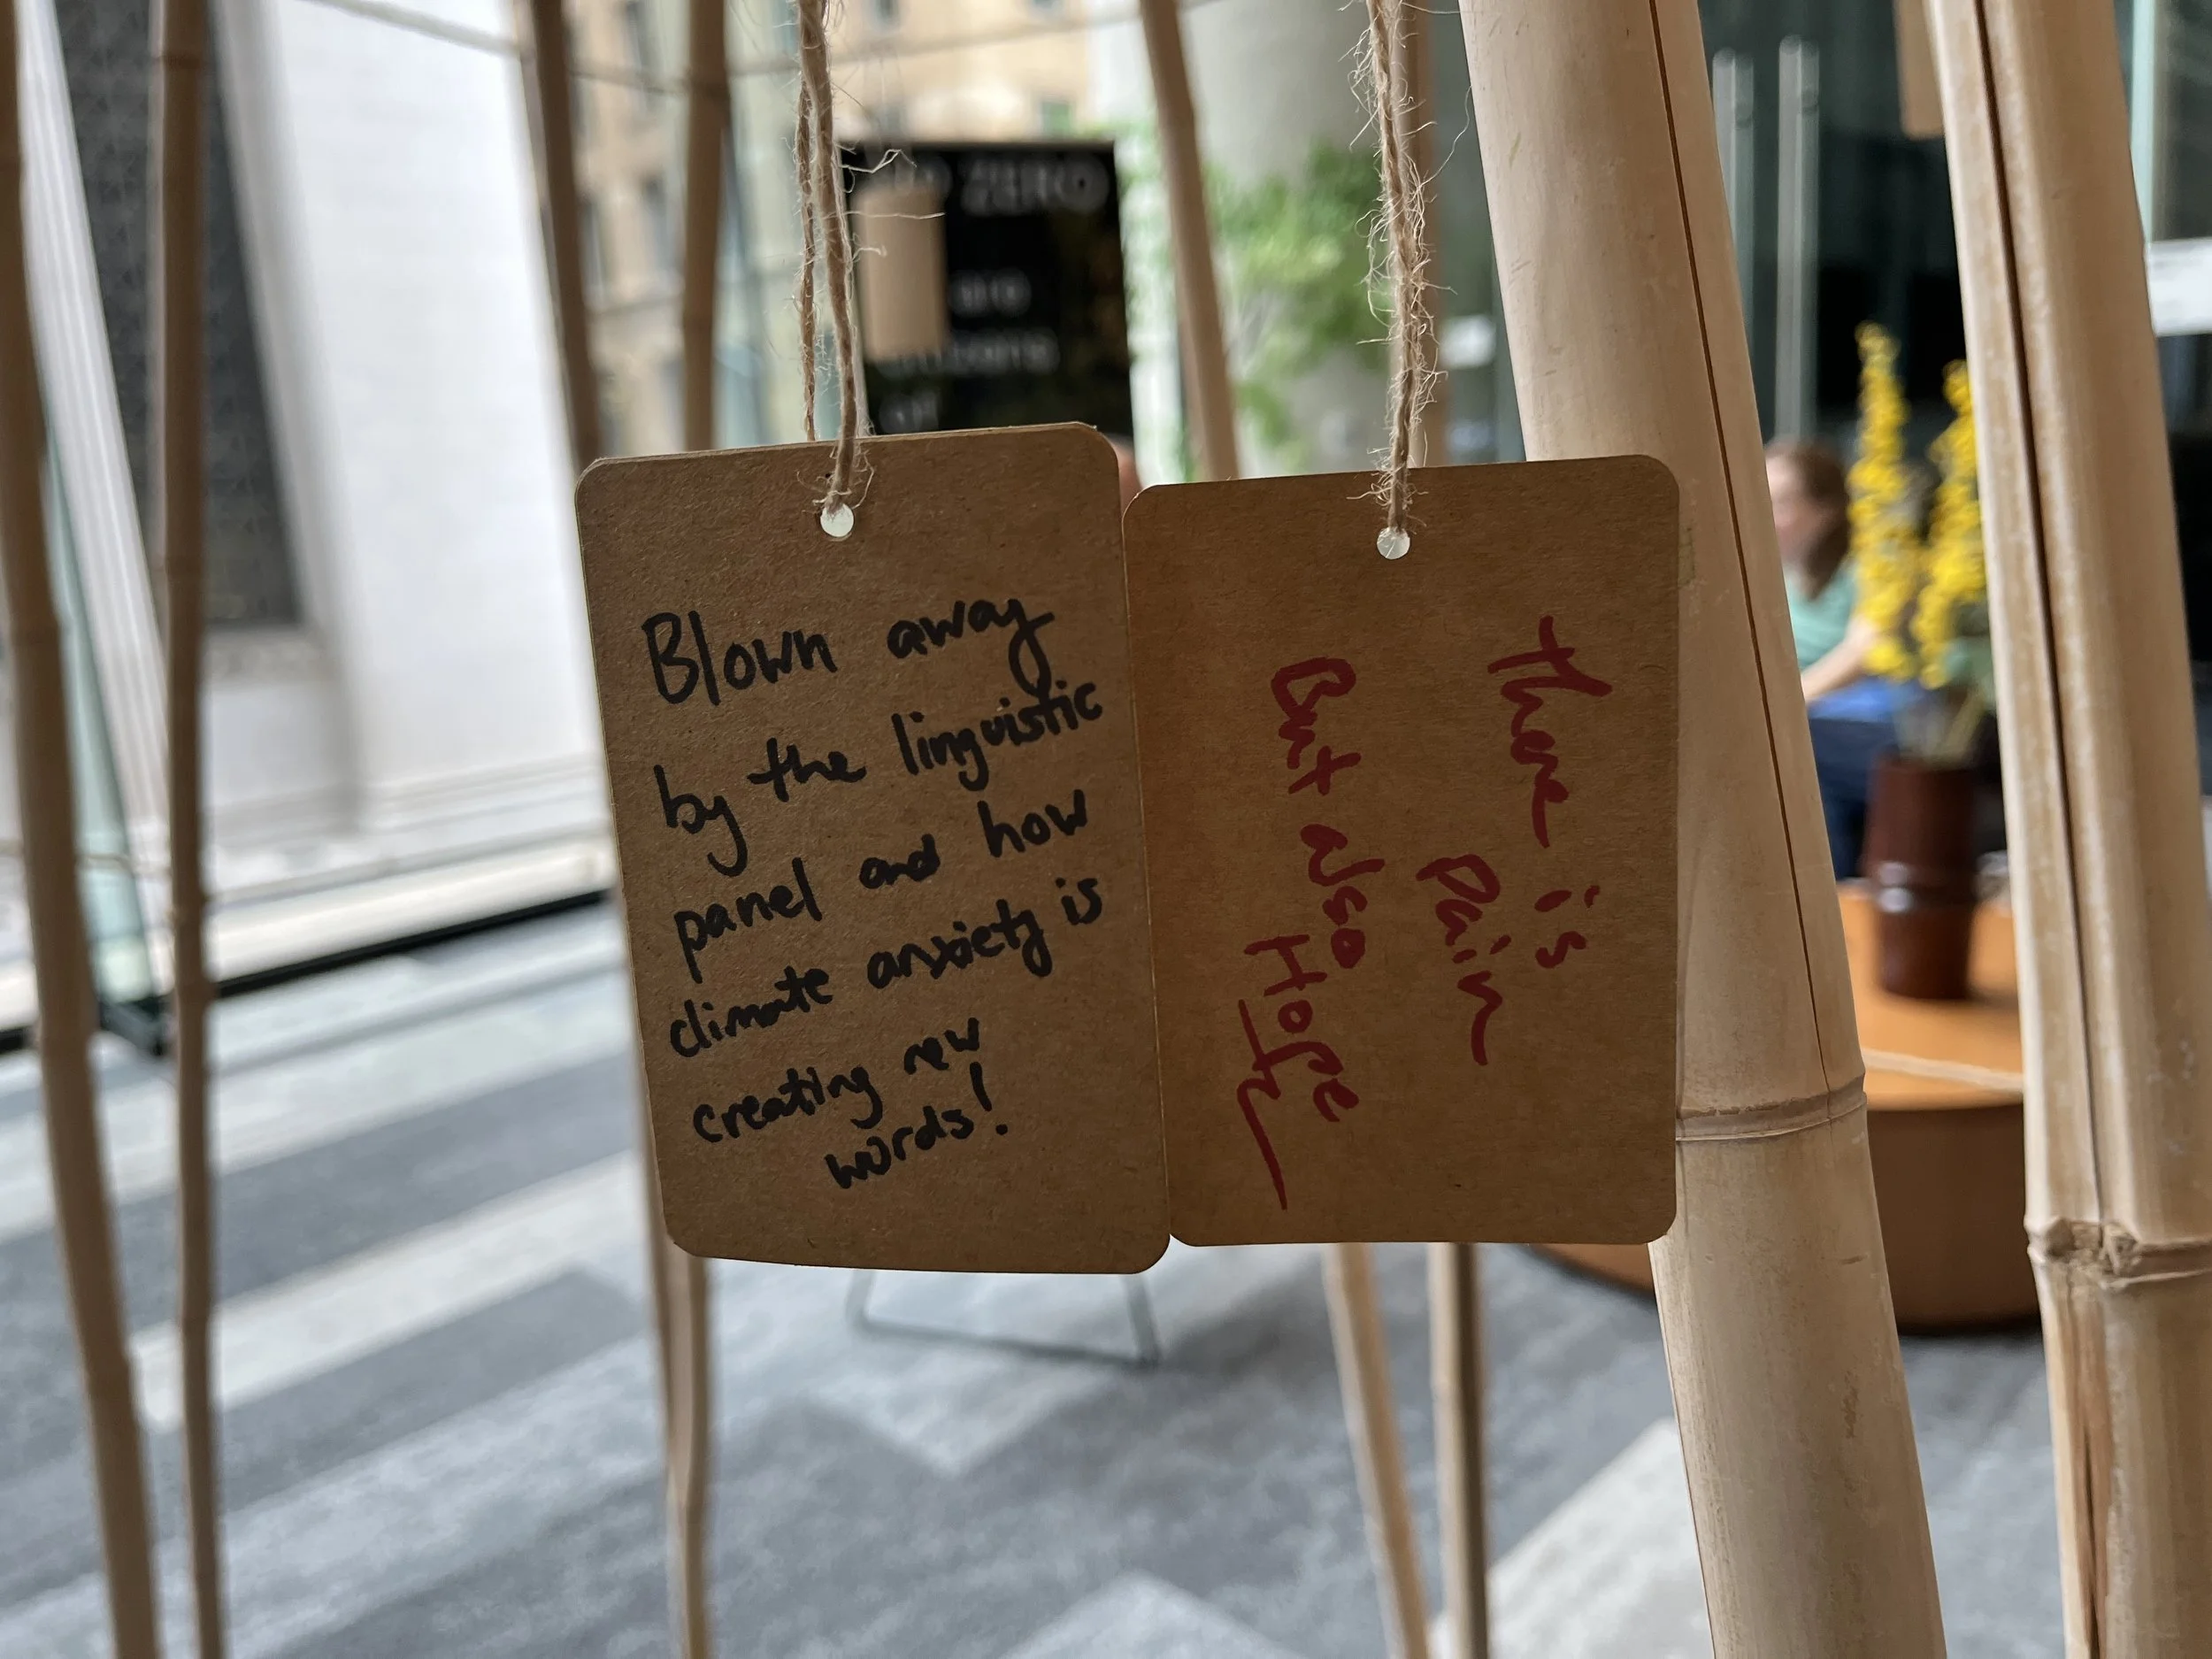 ZERO
are
of
Blown away
by the linguistic
panel and how
climate anxiety is
creating new
words!
There is
Pain
But also
Hope